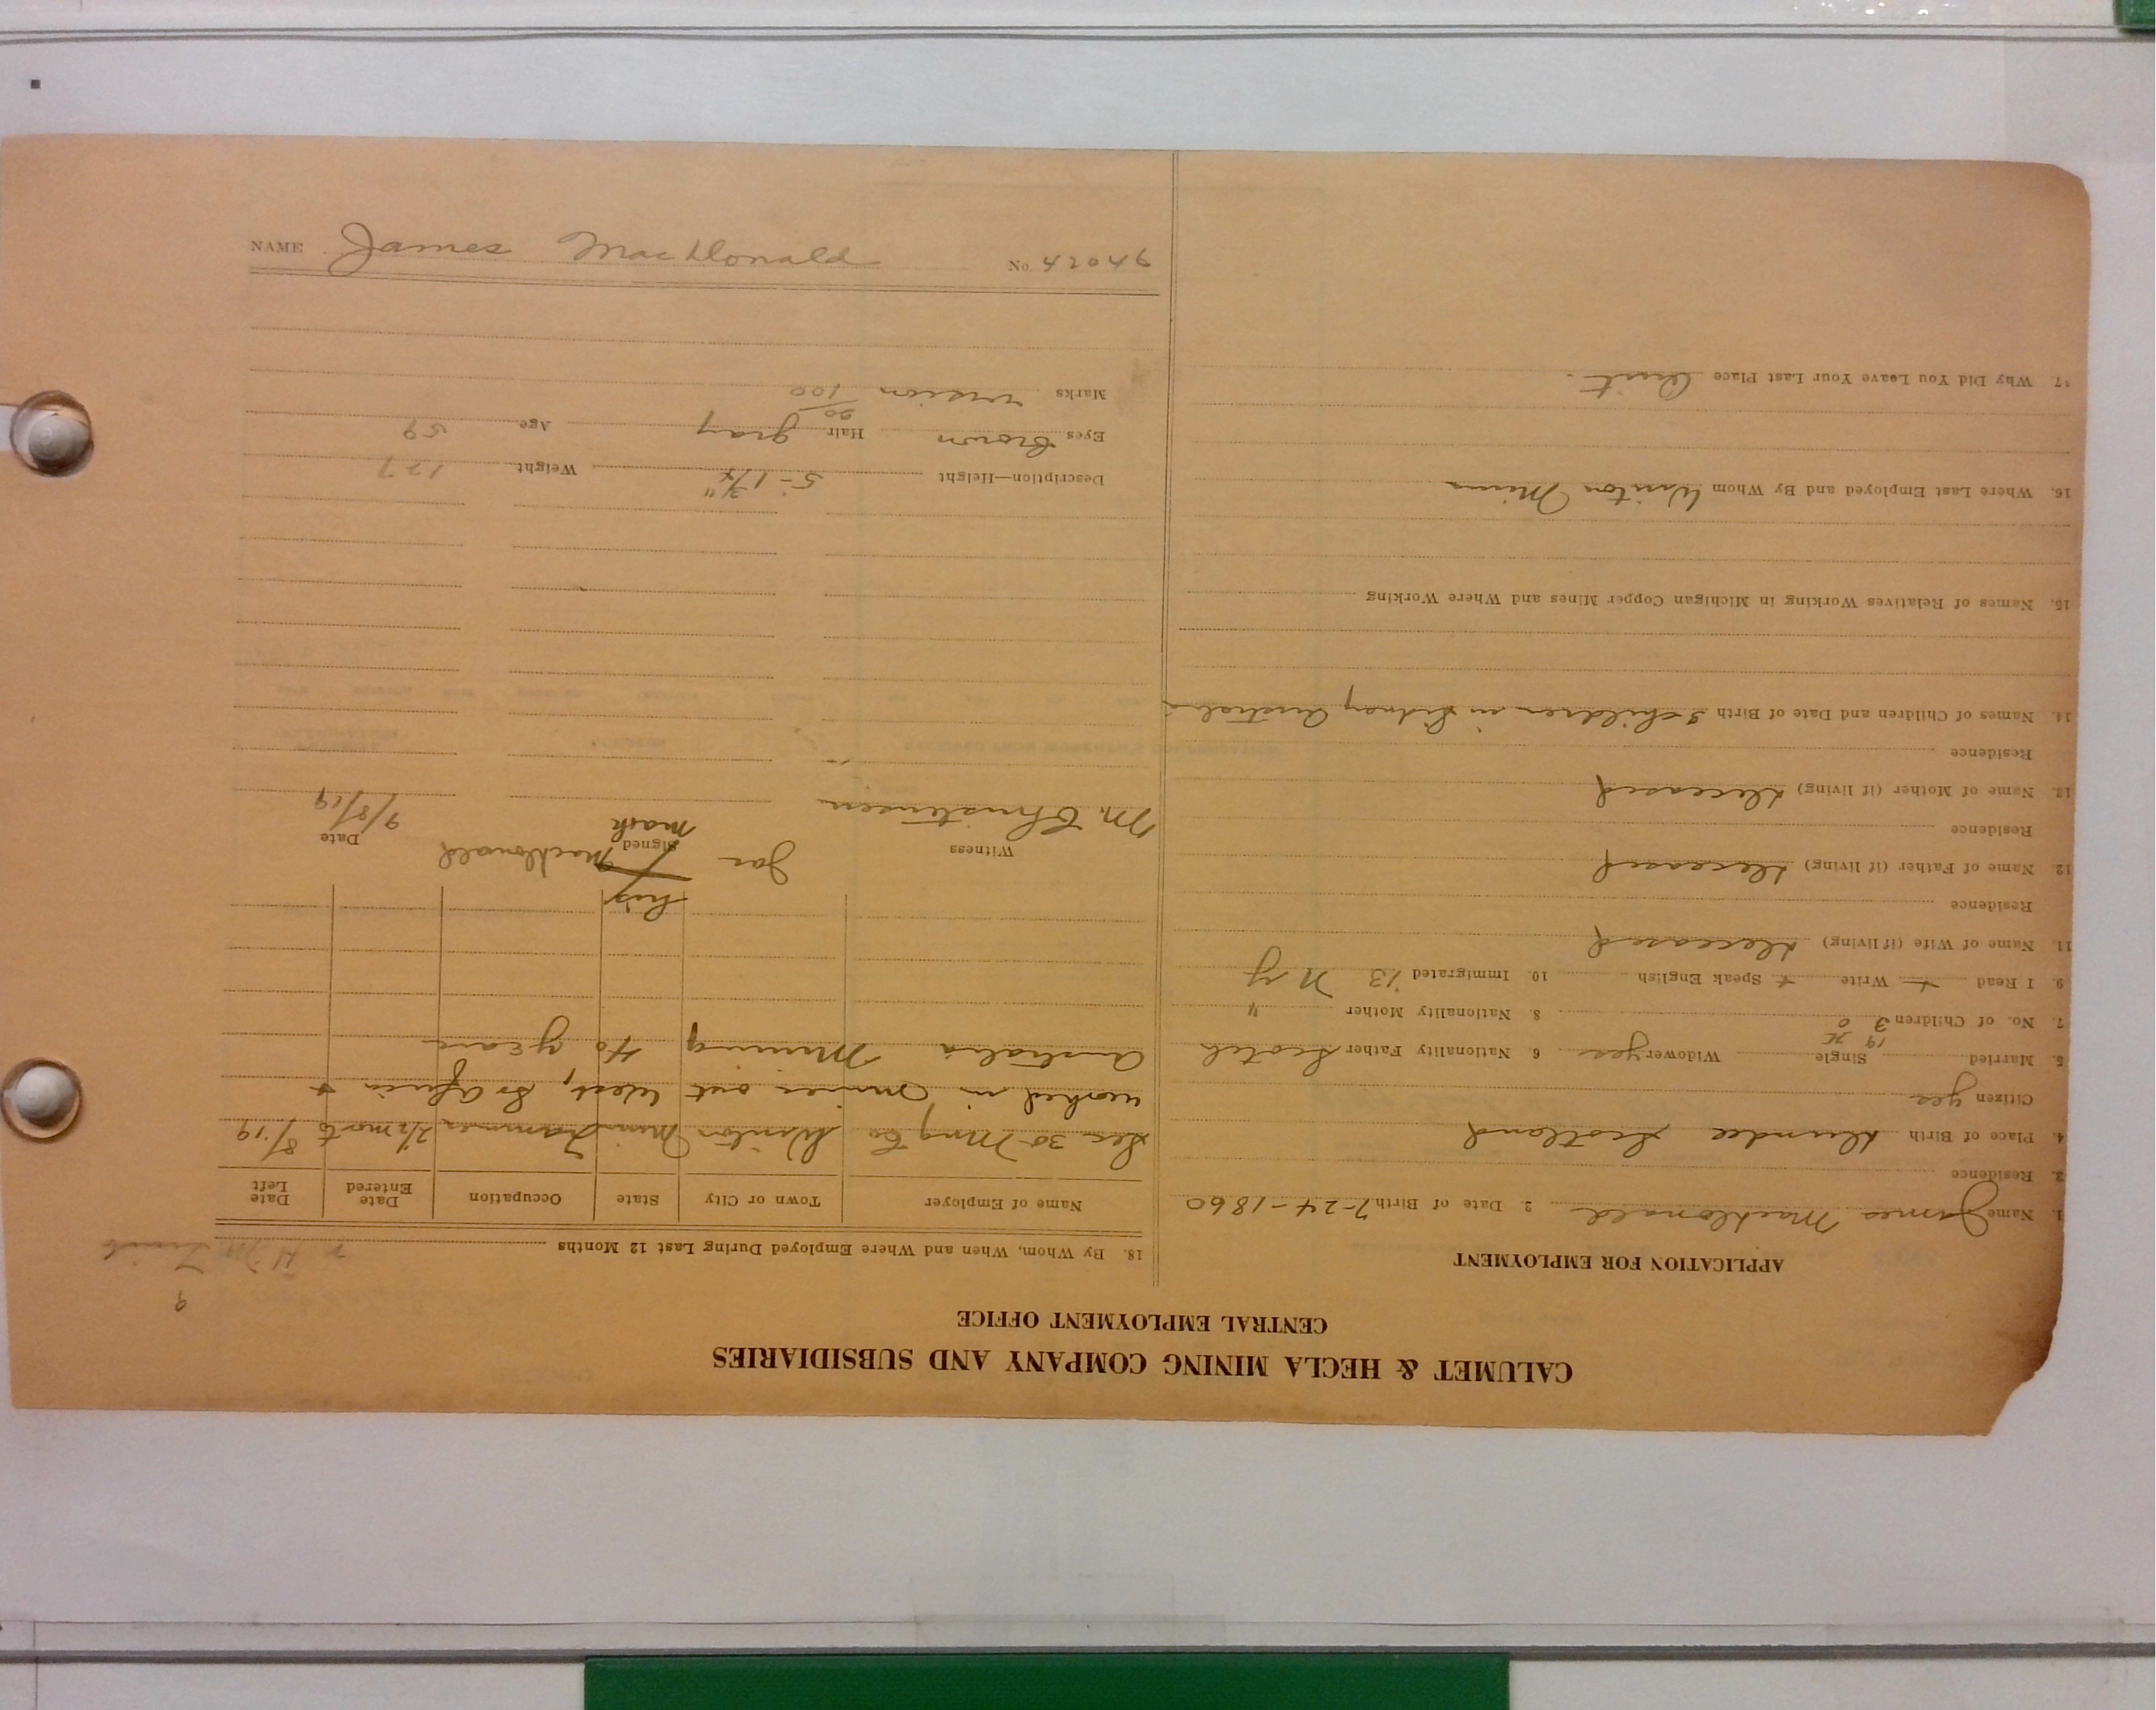 CALUMET & HECLA MINING COMPANY AND SUBSIDIARIES
CENTRAL EMPLOYMENT OFFICE
APPLICATION FOR EMPLOYMENT
1. Name James MacDonald 2. Date of Birth 7-24-1860
3. Residence
4. Place of Birth Dundee Scotland
Citizen yes
5. Married 19 Single Widower yes 6. Nationality Father Scotch
7. No. of Children 3 0 8. Nationality Mother "
9. I Read Write + Speak English 10. Immigrated '13 N Y
11. Name of Wife (if living) deceased
Residence
12. Name of Father (if living) deceased
Residence
13. Name of Mother (if living) deceased
Residence
14. Names of Children and Date of Birth 3 children in Sidney Australia
15. Names of Relatives Working in Michigan Copper Mines and Where Working
16. Where Last Employed and By Whom Winton Minn
17. Why Did You Leave Your Last Place Quit.
18. By Whom, When and Where Employed During Last 12 Months
Name of Employer Town or City State Occupation Date Entered Date Left
Sec 30 Mng Co Winton Minn Trammer 2 1/2 monts 8/19
worked in mines out West, So Africa +
Australia Mining 40 years
his
Witness Signed Date
M. Christensen Jas MacDonald 9/8/19
mark
Description—Height 5-1 3/4" Weight 127
Eyes Brown Hair gray Age 59
Marks vision 20/100
NAME James MacDonald No. 42046